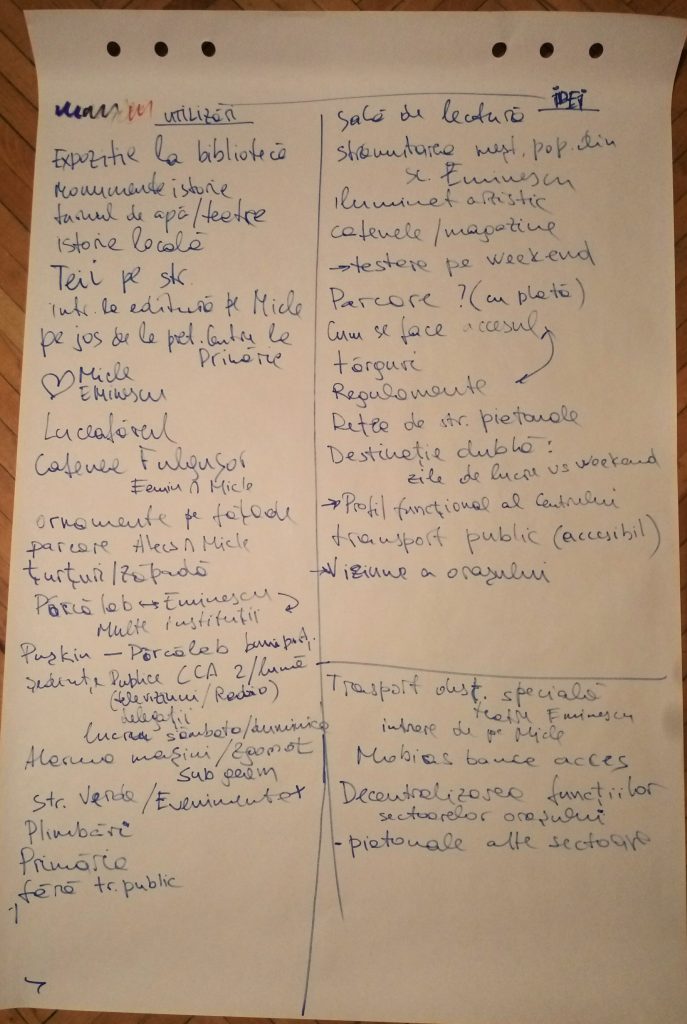 utilizări
Expoziție la bibliotecă
monumente istorie
turnul de apă/teatre
Istorie locală
Teii pe str.
intr. la editură pe Micle
pe jos de la piet. Centru la
Primărie
♡ Micle
Eminescu
Luceafărul
Cafenea Fulgușor
Emin ∩ Micle
ornamente pe fațade
parcare Alecs ∩ Micle
țurțuri/Zăpadă
Pârcălab ↔ Eminescu
Multe instituții
Pușkin – Pârcălab
ședințe Publice CCA 2/lună
(televiziuni/Radio)
delegații
lucrau sâmbăta/duminica
Alarma mașini/Zgomot
sub geam
str. Verde/Evenimente +
Plimbări
Primăria
fără tr. public
idei
Sală de lectură
strămutarea meșt. pop. din
sc. Eminescu
Iluminat artistic
cafenele/magazine
→ testare pe weekend
Parcare ? (cu plată)
Cum se face accesul
târguri
Regulamente
Rețea de str. pietonale
Destinație dublă:
zile de lucru vs weekend
→ Profil funcțional al Centrului
transport public (accesibil)
→ Viziune a orașului
Trasport dest. specială
teatru Eminescu
intrare de pe Micle
Mobias banca acces
Decentralizarea funcțiilor
sectoarelor orașului
- pietonale alte sectoare